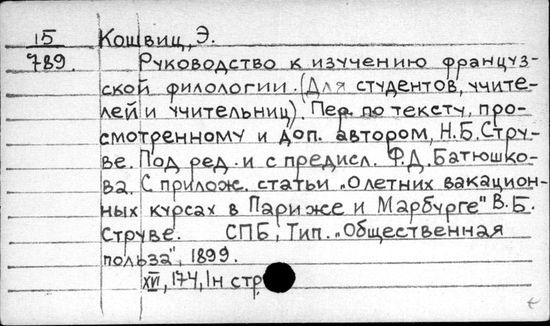 15 Кошвиц, Э.
789. Руководство к изучению француз-
ской филологии. (Для студентов, учите-
лей и учительниц). Пер. по тексту, про-
смотренному и доп. автором, Н.Б. Стру-
ве. Под ред. и с предисл. Ф.Д. Батюшко-
ва. С прилож. статьи „О летних вакацион-
ных курсах в Париже и Марбурге" В.Б.
Струве. СПБ, Тип. „Общественная
польза", 1899.
XVI, 174, 1н стр